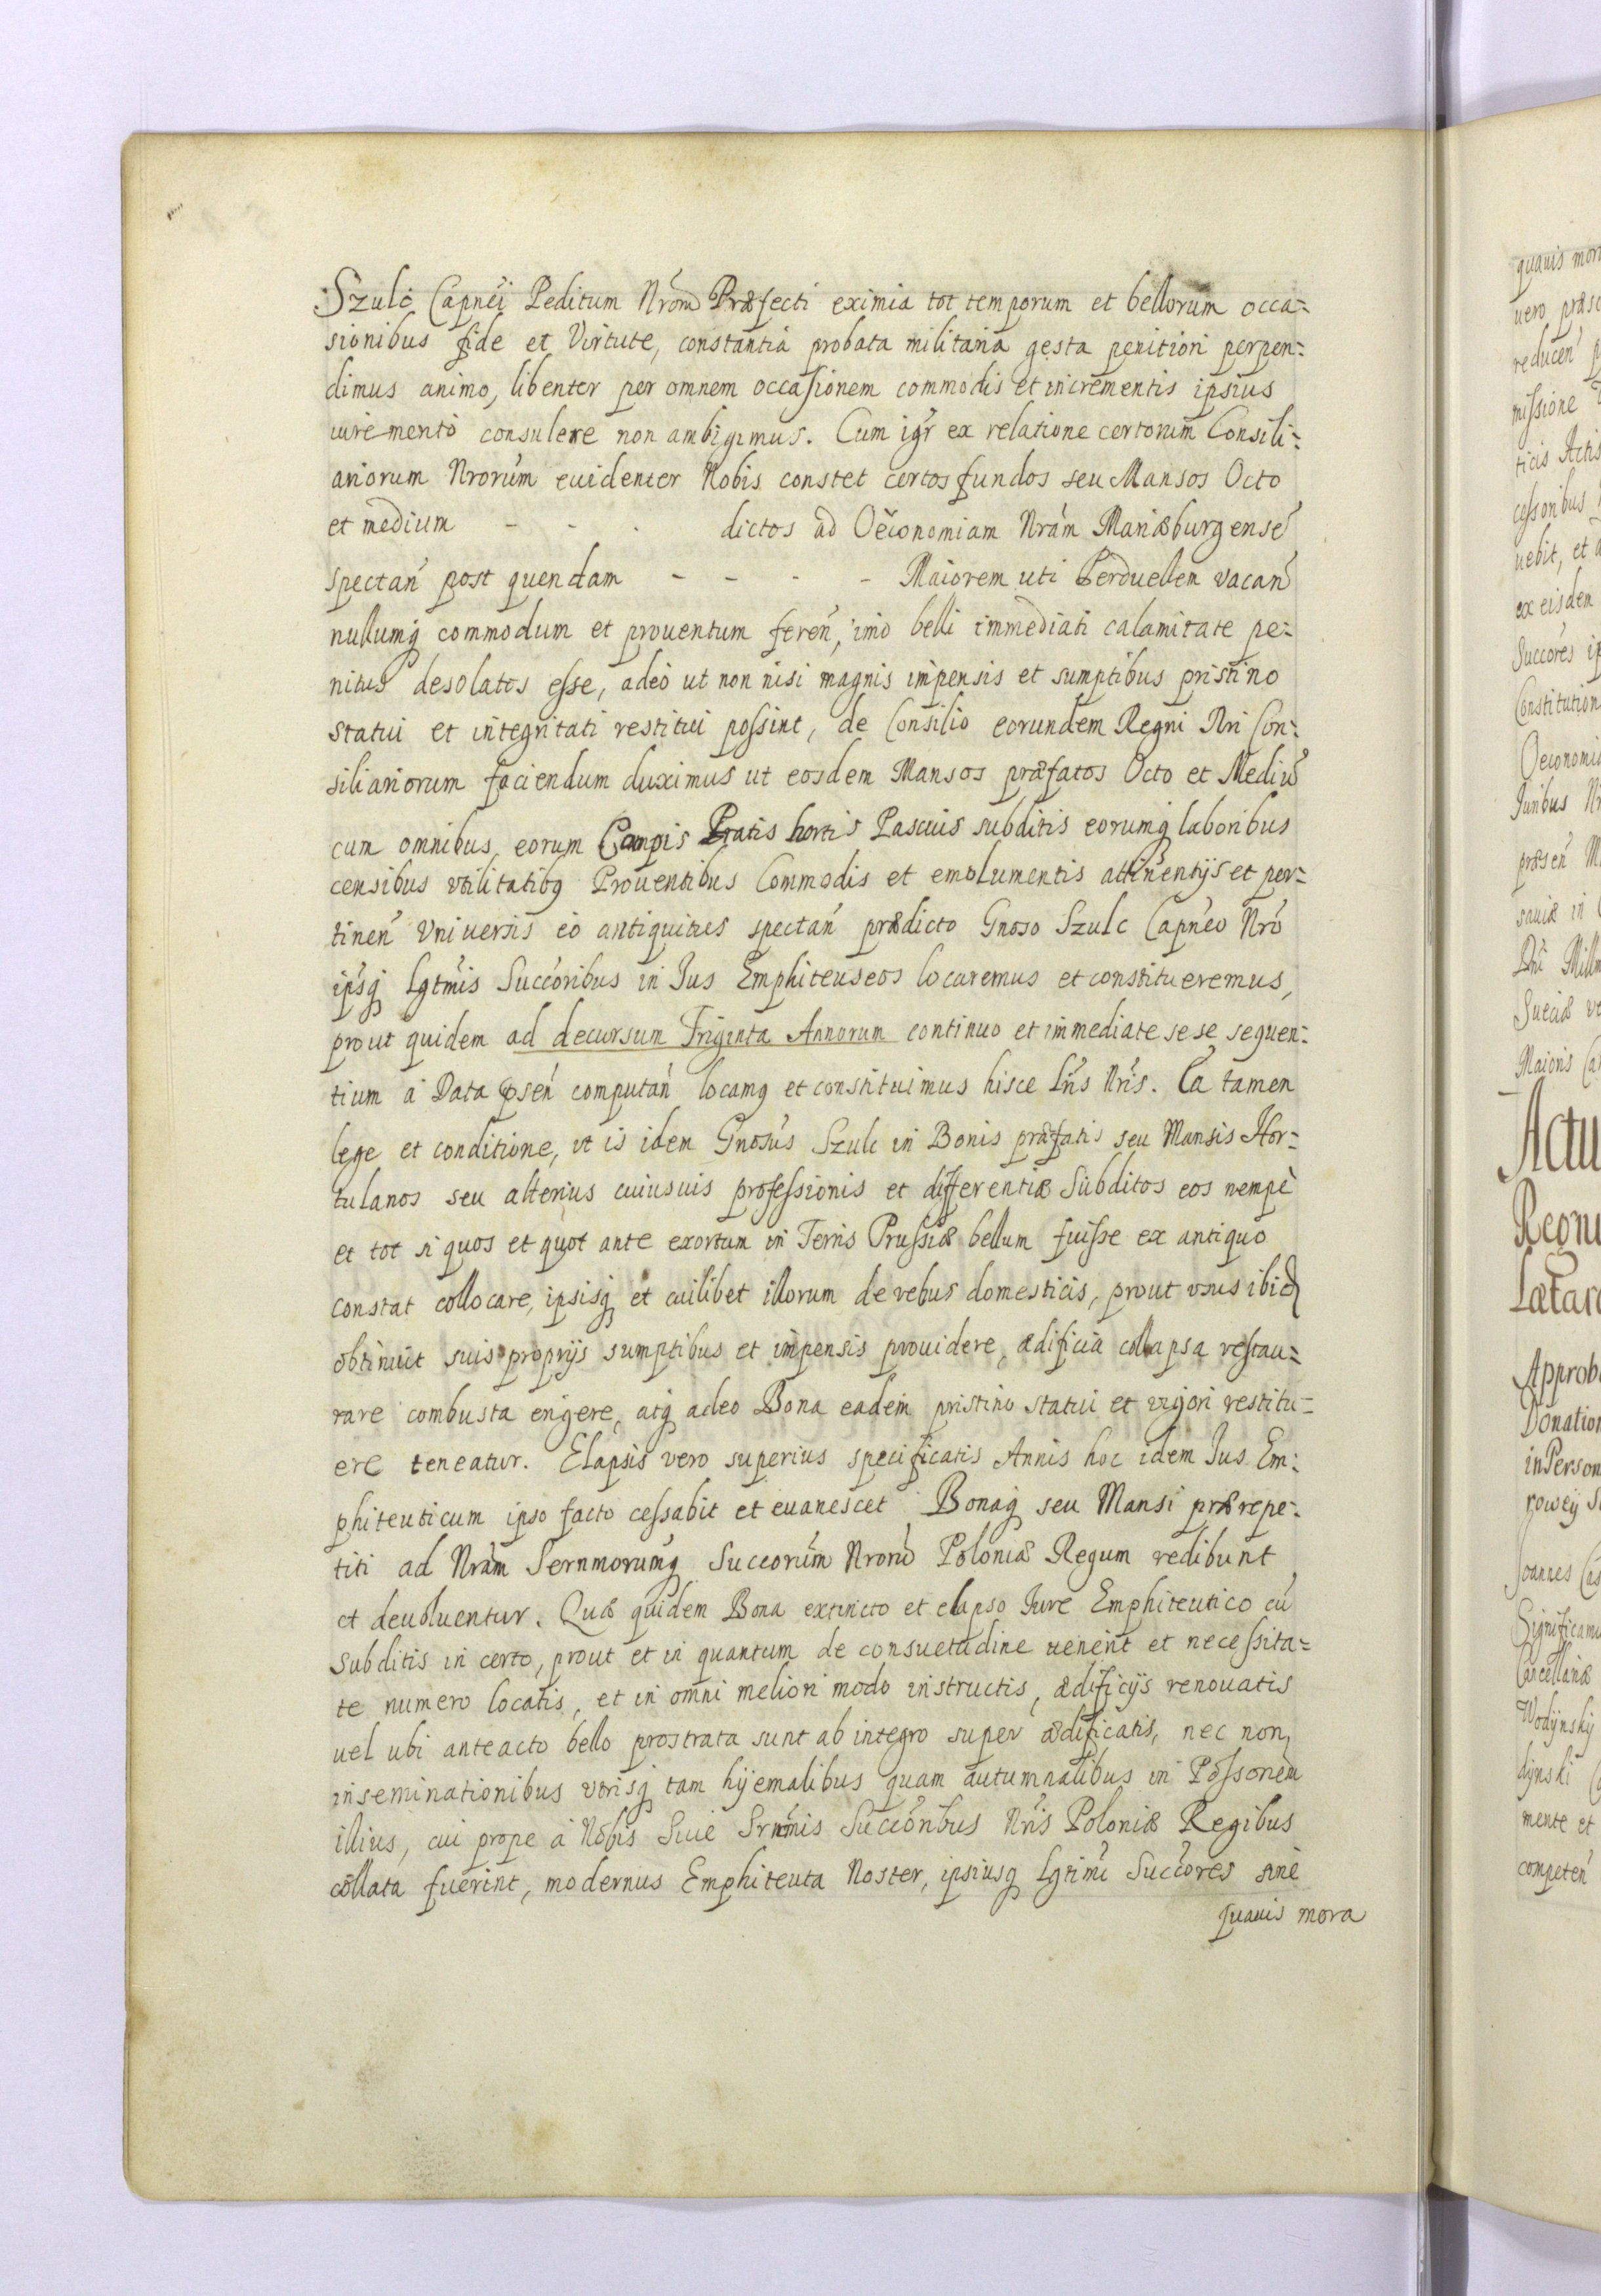 Szulc Capnei Peditum Nrorũ Præfecti eximia tot temporum et bellorum occa=
sionibus fide et Virtute, constantià probata militaria gesta penitiori perpen=
dimus animo, libenter per omnem occasionem commodis et incrementis ipsius
iure meritò consulere non ambigimus. Cum igr ex relatione certorum Consili=
ariorum Nrorum euidenter Nobis constet certos fundos seu Mansos Octo
et medium - - - dictos ad Oeconomiam Nram Mariæburgense
spectan post quendam - - - - Maiorem uti Perduellem vacan
nullumq commodum et prouentum feren, imò belli immediati calamitate pe=
nitus desolatos esse, adeò ut non nisi magnis impensis et sumptibus pristino
statui et integritati restitui possint, de Consilio eorundem Regni Nri Con=
siliariorum faciendum duximus ut eosdem Mansos præfatos Octo et Mediũ
cum omnibus eorum Campis Pratis hortis Pascuis subditis eorumq laboribus
censibus vtilitatibq Prouentibus Commodis et emolumentis attinentijs et per=
tinen Vniuersis eò antiquitus spectan prædicto Gnoso Szulc Capneo Nro
ipsq Lgtmis Succoribus in Jus Emphiteuseos locaremus et constitueremus,
prout quidem ad decursum Triginta Annorum continuo et immediate sese sequen=
tium à Data psen computan locamq et constituimus hisce Lris Nris. Ea tamen
lege et conditione, vt is idem Gnosus Szulc in Bonis præfatis seu Mansis Hor=
tulanos seu alterius cuiusuis professionis et differentiæ Subditos eos nempè
et tot si quos et quot ante exortum in Terris Prussiæ bellum fuisse ex antiquo
constat collocare, ipsisq et cuilibet illorum de rebus domesticis, prout vsus ibid
obtinuit suis proprijs sumptibus et impensis prouidere, ædificia collapsa restau=
rare combusta erigere, atq adeo Bona eadem pristino statui et vigori restitu=
ere teneatur. Elapsis vero superius specificatis Annis hoc idem Jus Em=
phiteuticum ipso facto cessabit et euanescet Bonaq seu Mansi prærepe=
titi ad Nram Sernmorumq Succorum Nrorũ Poloniæ Regum redibunt
et deuoluentur. Quæ quidem Bona extincto et elapso Jure Emphiteutico cũ
Subditis in certo, prout et in quantum de consuetudine uenerit et necessita=
te numero locatis, et in omni meliori modo instructis, ædificijs renouatis
uel ubi anteacto bello prostrata sunt ab integro super ædificatis, nec non
inseminationibus vtrisq tam hijemalibus quam autumnalibus in Possonem
illius, cui prope à Nobis Siue Srnmis Succoribus Nris Poloniæ Regibus
collata fuerint, modernus Emphiteuta Noster, ipsiusq Lgtimi Succores sinè
quauis mora